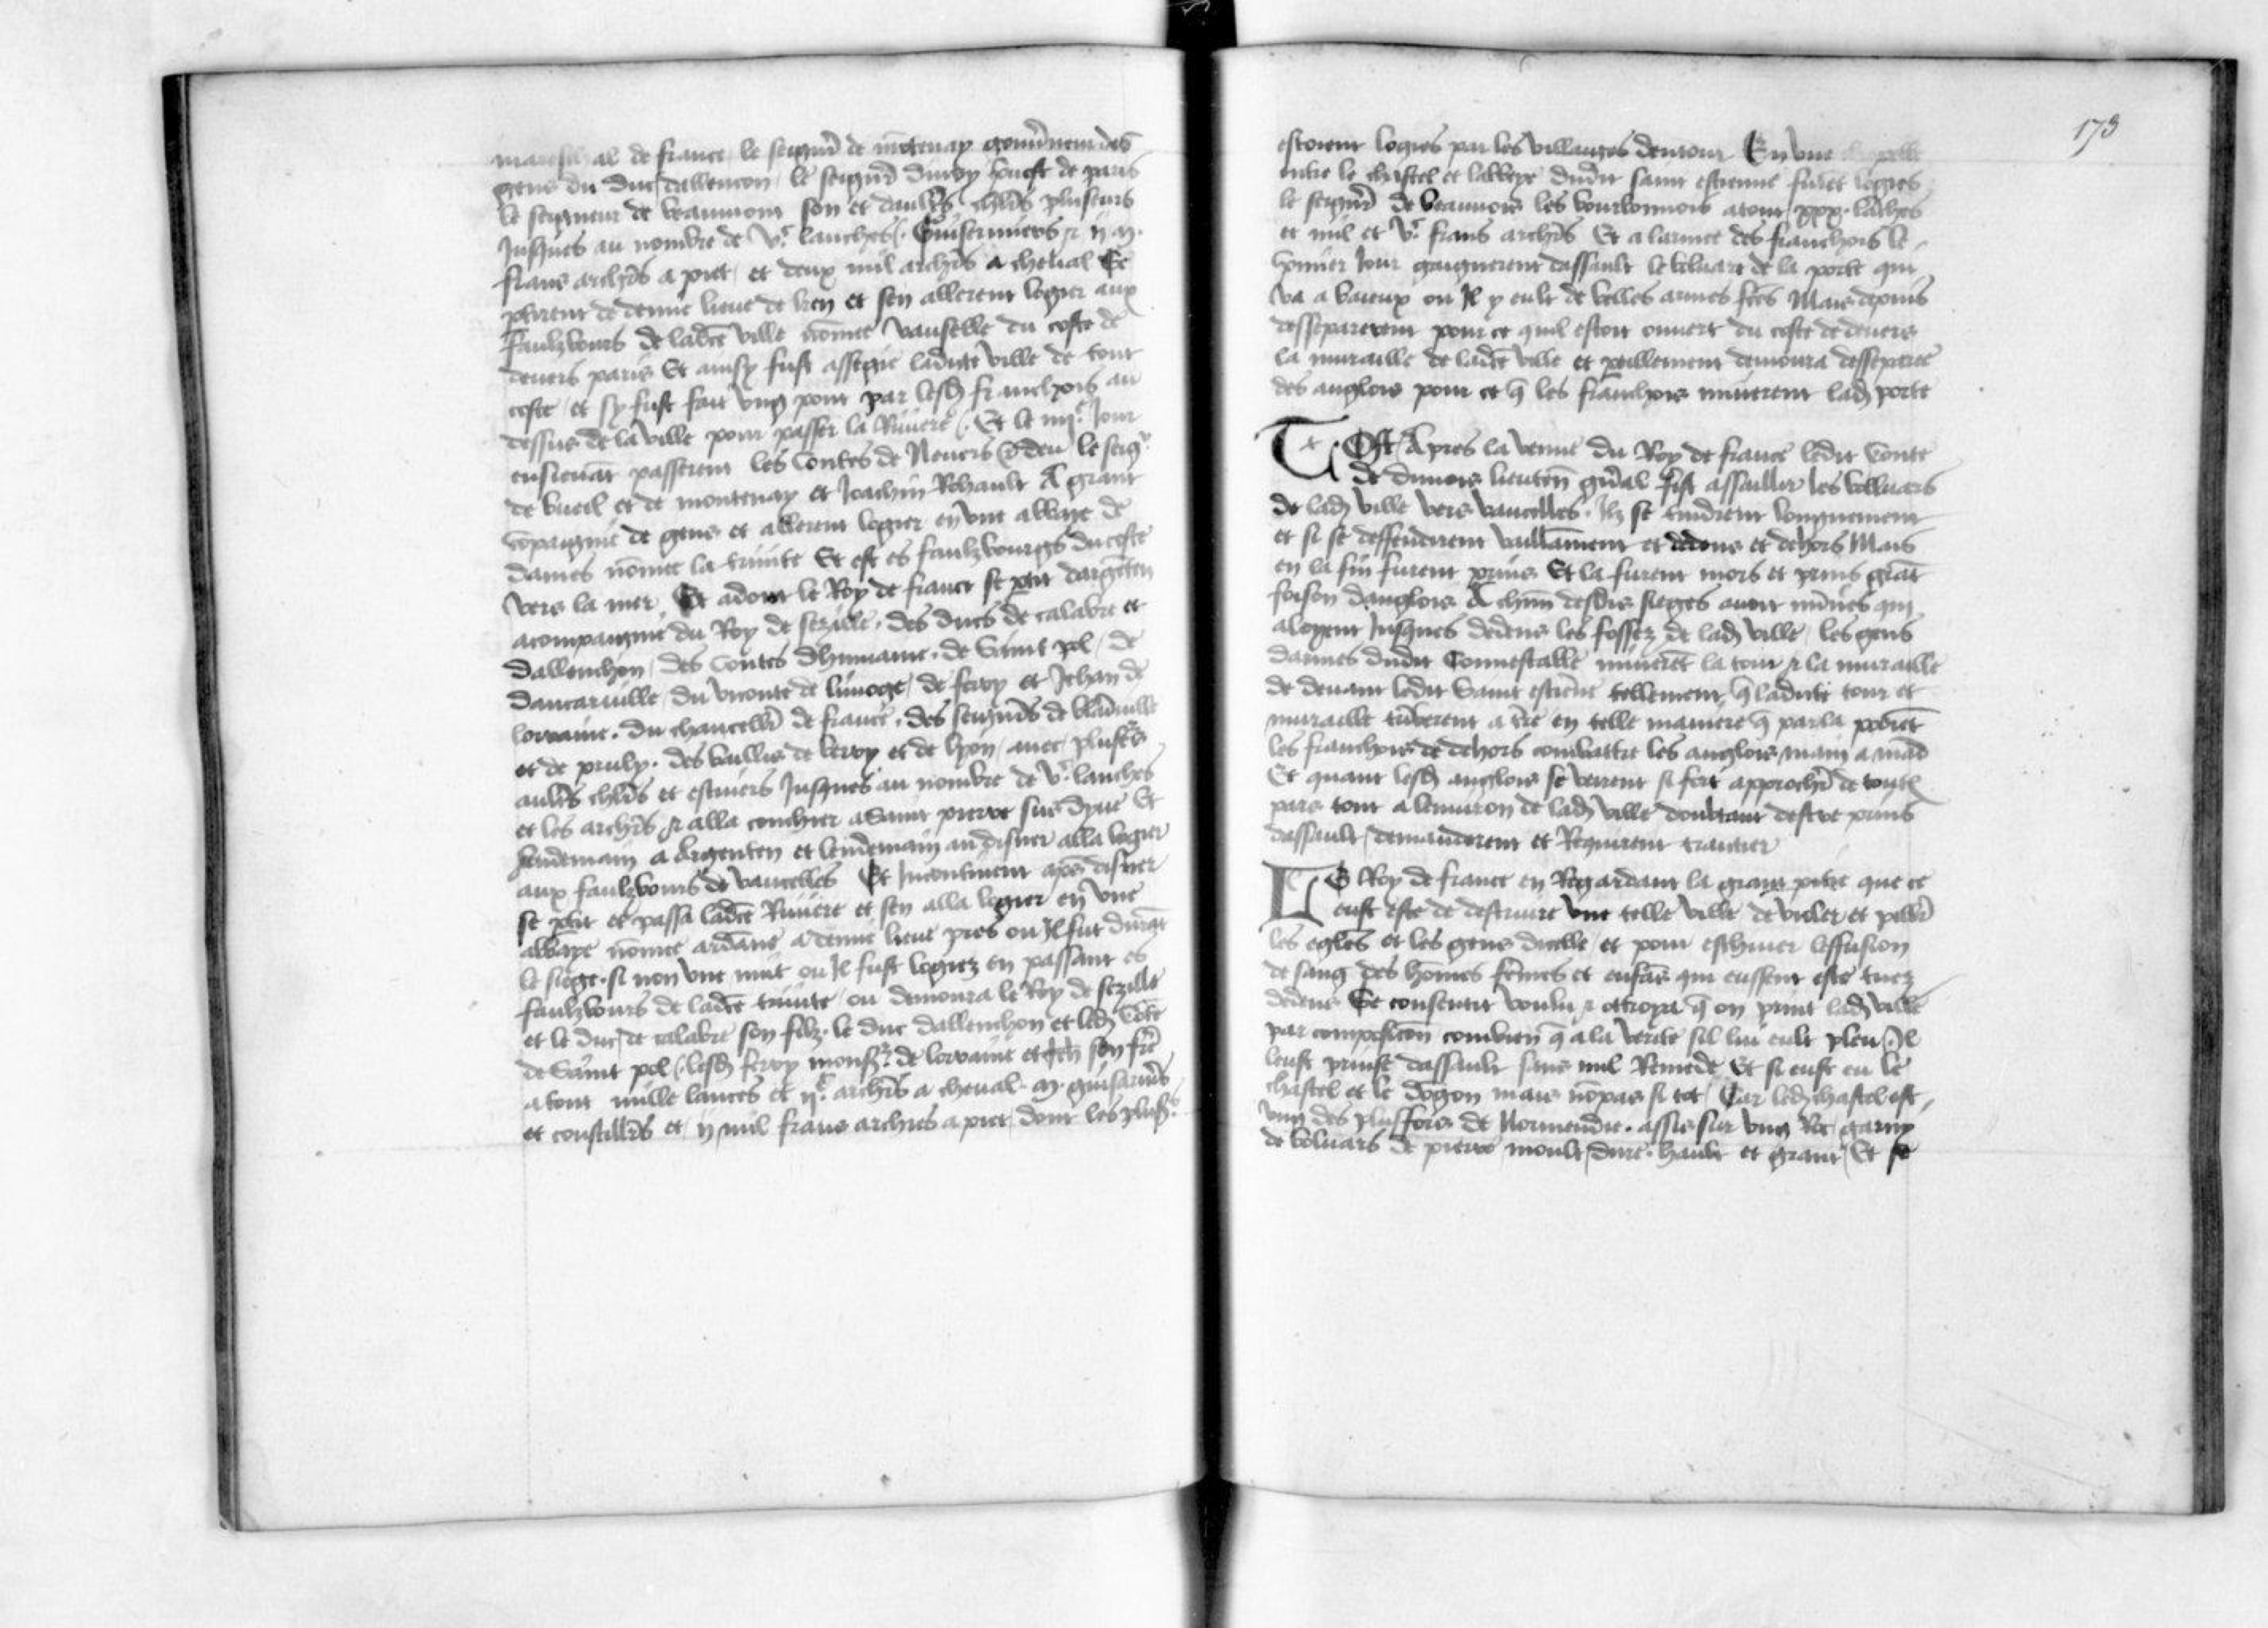 mareschal de france le seignr̃ de mõtenay gouũneur des
gens du duc dallencon le seignr̃ diury prest de paris
le seigneur de beaumont son et daultr̃s chlr̃s pluseurs
Jusques au nombre de vᶜ lanches. Guisarmiers ⁊ ij m.
frans archr̃s a piet et deux mil archr̃s a cheual Se
ptirent de demie lieue de ken et sen allerent logier aux
faulxbours de ladce ville nõmee vauselle du coste de
deuers paris Et ainsy fust assegie ladicte ville de tout
coste et sy fust fait vng pont par lesd franchois au
dessus de la ville pour passer la Riuiere. Et le iiijᵉ Jour
ensieuãt passerent les Contes de Neuers deu le seigʳ
de bueil et de montenay et Joachin Rohault A grant
cõpaignie de gens et allerent logier en vne abbaye de
dames nõmee la trinite Et est es faulxbourgs du coste
vers la mer. Et adont le Roy de france se ptit dargẽten
acompaignie du Roy de sezille. des ducs de calabre et
dallenchon des Contes dhumaine. de Saint pol de
dancaruille du viconte de limoge de ferry et Jehan de
lorraine. du chancellr̃ de france. des seignrs̃ de blãuille
et de pruly. des baillis de berry et de lyon auec plusrs̃
aultr̃s chlr̃s et escuiers Jusques au nombre de vᶜ lanches
et les archr̃s ⁊ alla couchier a Saint pierre sur dyue Et
lendemain a Argenten et lendemain au disner alla logier
aux faulxbours de vaucelles Et Incontinent apr̃s disner
se ptit et passa ladce Riuiere et sen alla logier en vne
abbaye nõmee ardãne a demie lieue pres ou Il fut durãt
le siege. si non vne nuit ou Il fust logiez en passant es
faulxbours de ladce trinite ou demoura le Roy de sezille
et le duc de calabre son filz. le duc dallenchon et led Cõte
de Saint pol. lesd ferry monsʳ de lorraine et Jeh son fre
a tout mille lances et ijᶜ archr̃s a cheual. m. guisarmrs̃
et coustillrs̃ et ij mil frans archies a piet dont les plusʳˢ
173
estoient logies par les villaiges dentour En vne chapelle
entre le chastel et labbeye dudit saint estienne furẽt logies
le seignr̃ de beaumont les bourbonnois atout xxx. lãches
et mil et vᶜ frans archr̃s Et a larmee des franchois le
premier Jour gaignerent dassault le boluart de la porte qui
va a baieux ou Il y eult de belles armes ftes Mais depuis
desseparerent pour ce quil estoit ouuert du coste de deuers
la muraille de ladce ville et peillement demoura desseparee
des anglois pour ce q̃ les franchois minerent lad porte
TOst Apres la venue du Roy de france ledit Conte
de dunois lieutẽn gñal fist assaillir les bolluars
de lad ville vers vaucelles. Ilz se tindrent longuement
et si se deffendirent vaillãment et dedens et dehors Mais
en la fin furent prins Et la furent mors et prins grãt
foison danglois A chũn desdis sieges auoit mines qui
aloyent Jusques dedens les fossez de lad ville les gens
darmes dudit Connestable minerẽt la tour ⁊ la muraille
de deuant ledit Saint estiẽne tellement q̃ ladicte tour et
muraille tũberent a tẽre en telle maniere q̃ par la poõiẽt
les franchois de dehors combattre les anglois main a mãd
Et quant lesd anglois se veirent si fort approchr̃ de toutes
pars tout a lenuiron de lad ville doubtant destre prins
dassault demanderent et Requirent traittier
LE Roy de france en Regardant la grant pitie que ce
eust este de destruire vne telle ville de violer et pillr̃
les eglr̃s et les gens dicelle et pour eschiuer leffusion
de sang des hõmes fẽmes et enfãs qui eussent este tuez
dedens Se consentit voulu ⁊ ottroya q̃ on print lad ville
par composicõn combien q̃ a la verite sil lui eult pleu Il
leust prinse dassault sans nul Remede Et si eust eu le
chastel et le dõgon mais nõpas si tot Car led chastel est
vng des plusfors de Normendie. assis sur vng Roc garny
de boluars de pierre moult dure. hault et grant Et se